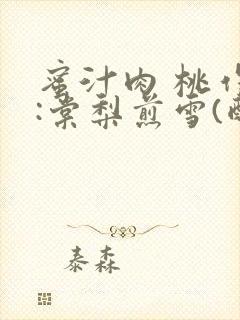 蜜汁肉桃
:棠梨煎雪(
泰森